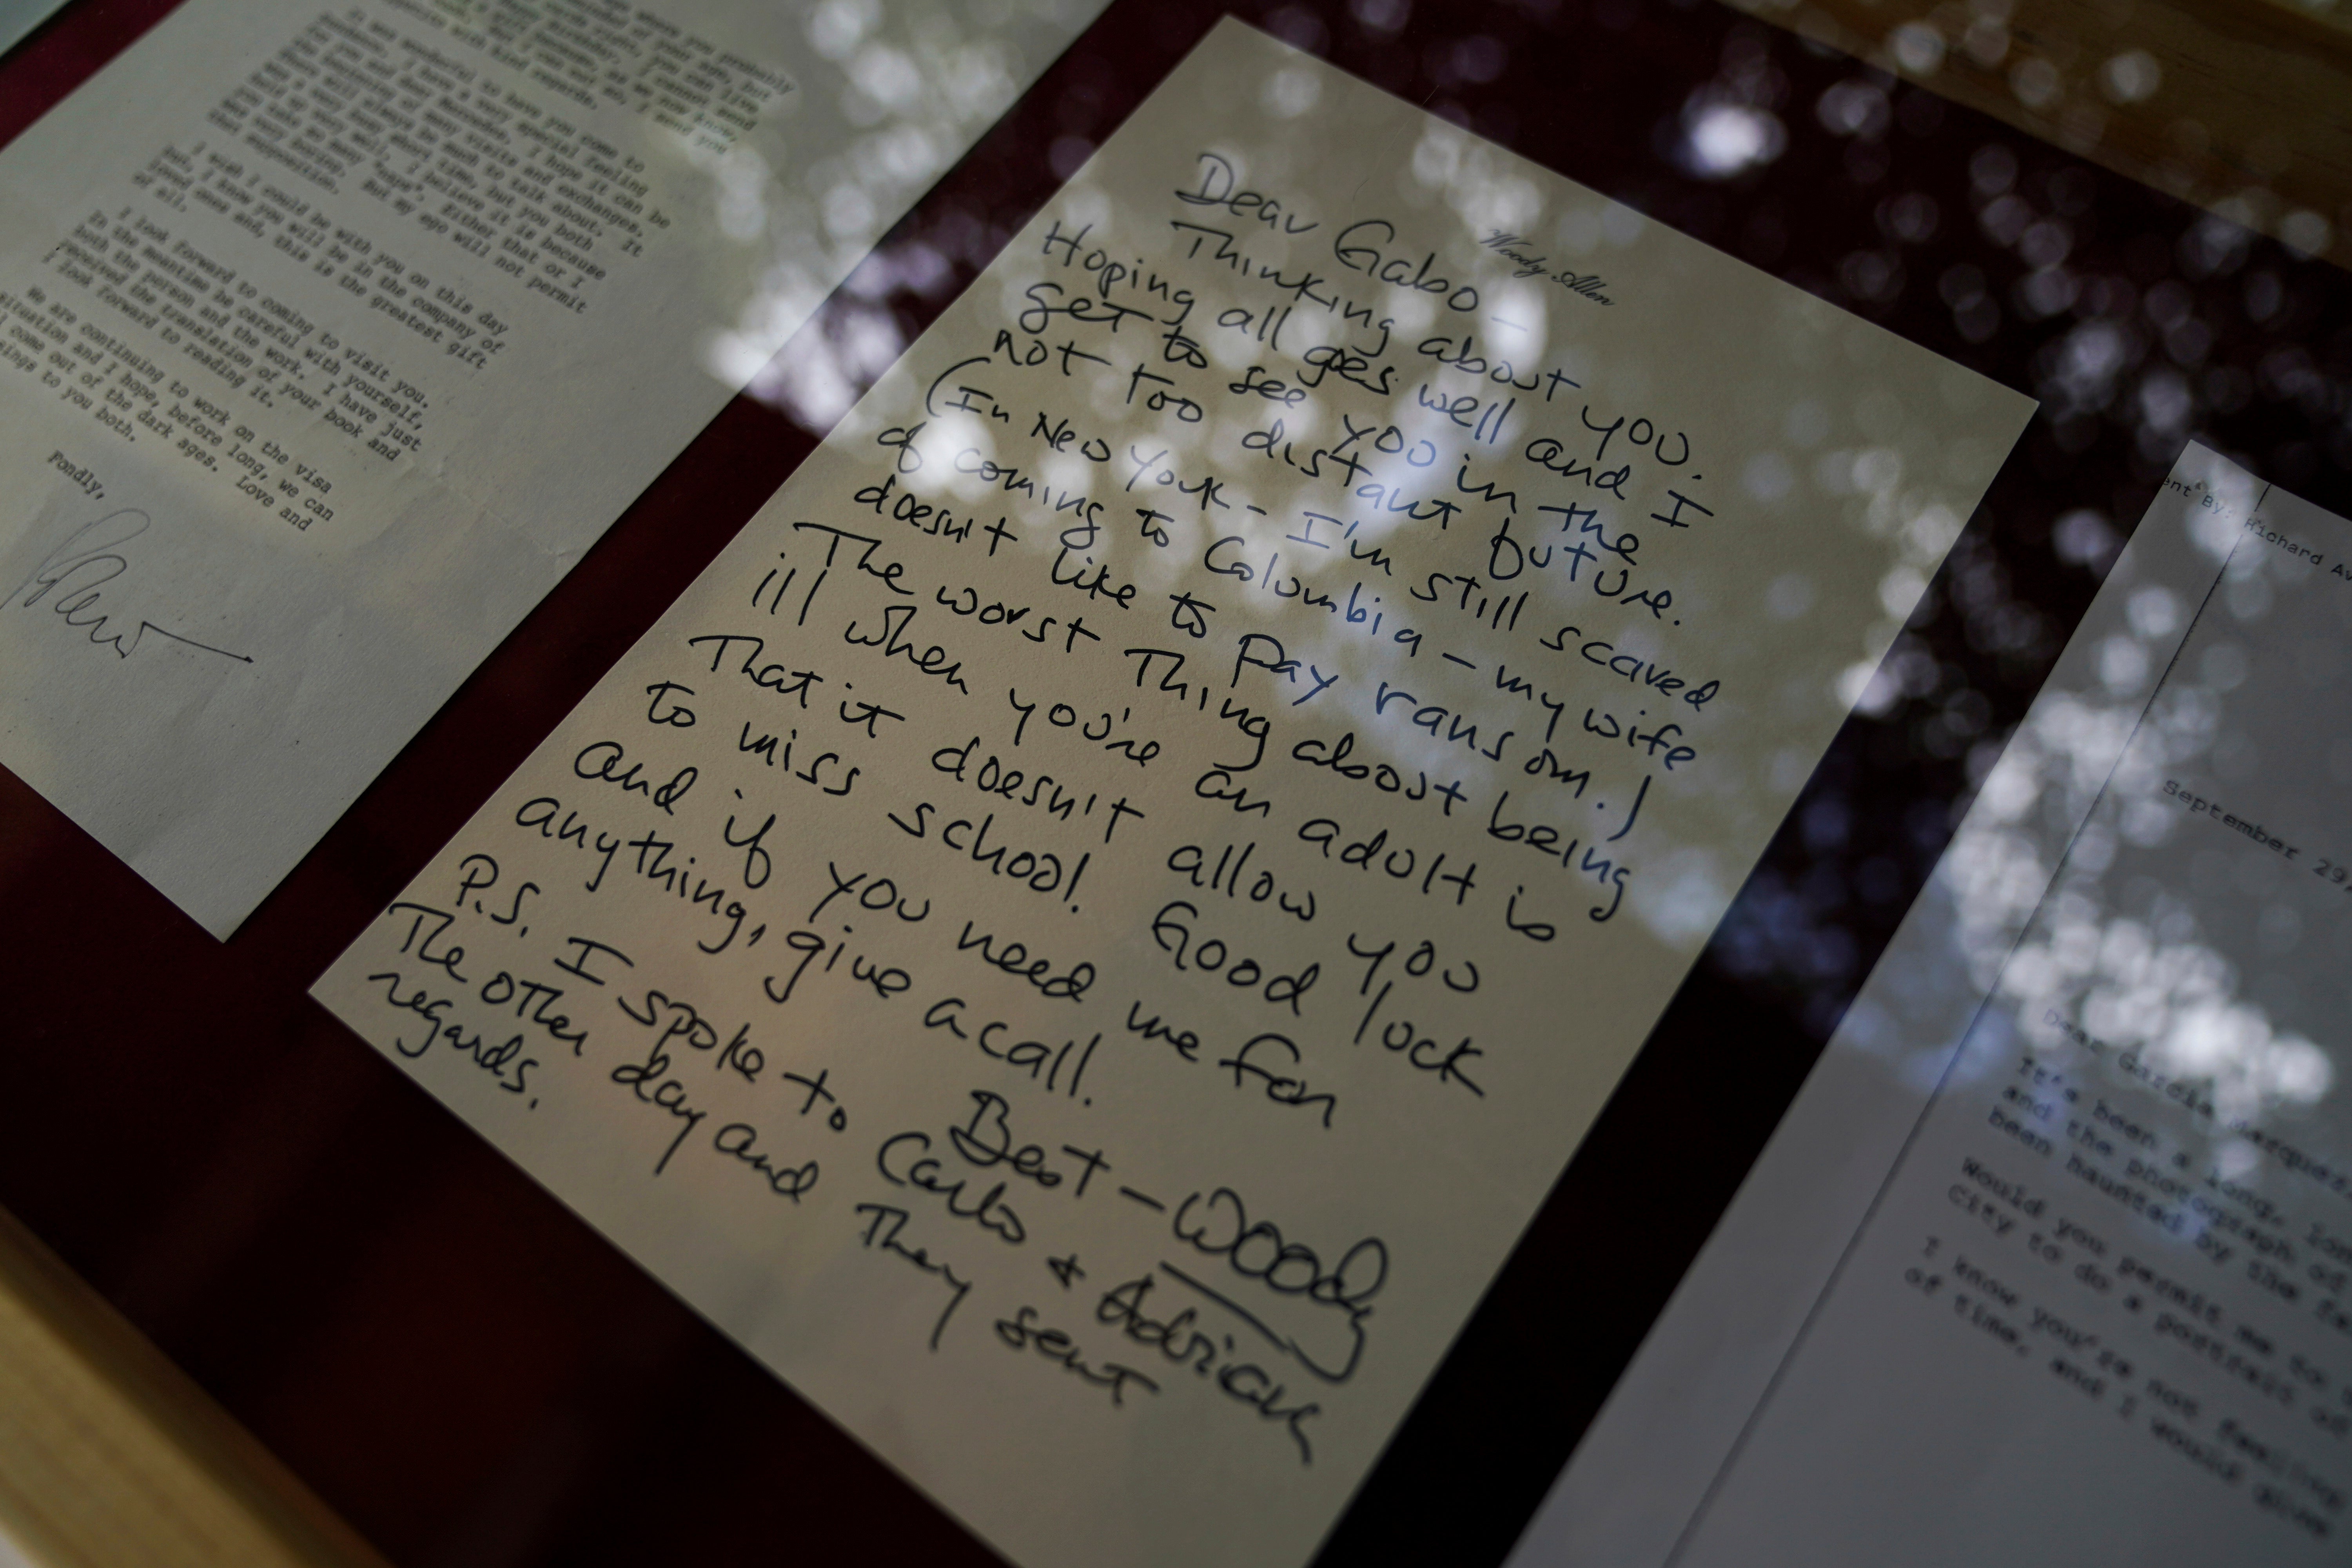 where you probably
can live
I cannot send
as we now know,
I send you
with kind regards.
It was wonderful to have you come to
I have a very special feeling
for you and Mercedes. I hope it can be
the beginning of many visits and exchanges.
There will always be much to talk about. It
was a very short time, but you both
look so very well, I believe it is because
that very being. But my ego will not permit
supposition.
I wish I could be with you on this day
but, I know you will be in the company of
loved ones and, this is the greatest gift
of all.
I look forward to coming to visit you.
In the meantime be careful with yourself,
both the person and the work. I have just
received the translation of your book and
I look forward to reading it.
We are continuing to work on the visa
situation and I hope, before long, we can
come out of the dark ages. Love and
to you both.
Fondly,
Woody Allen
Dear Gabo -
Thinking about you.
Hoping all goes well and I
get to see you in the
not too distant future.
(In New York - I'm still scared
of coming to Columbia - my wife
doesn't like to pay ransom.)
The worst thing about being
ill when you're an adult is
That it doesn't allow you
to miss school. Good luck
and if you need me for
anything, give a call.
Best - Woody
P.S. I spoke to Carlo + Adrian
The other day and They sent
regards.
By: Richard
September 29,
Dear Garcia Marquez,
It's been a long,
and the photograph of
been haunted by the
Would you permit me to
City to do a portrait of
I know you're not
of time, and I would